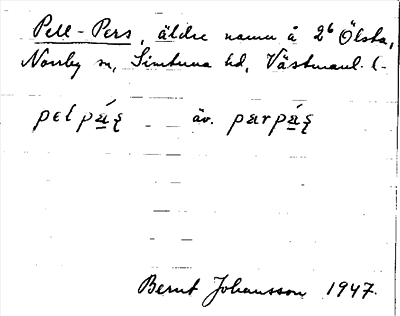 Pell-Pers, äldre namn å 2⁶ Ölsta,
Norrby sn, Simtuna hd, Västmanl. l.
pɛlpá̲ʂ äv. parpá̲ʂ
Bernt Johansson 1947.